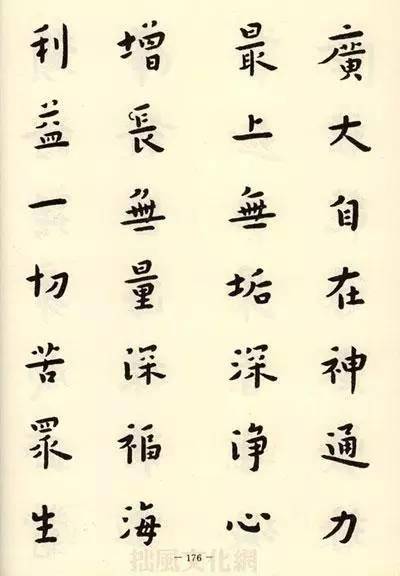 廣大自在神通力
最上無垢深淨心
增長無量深福海
利益一切苦眾生
－176－
拙風文化網